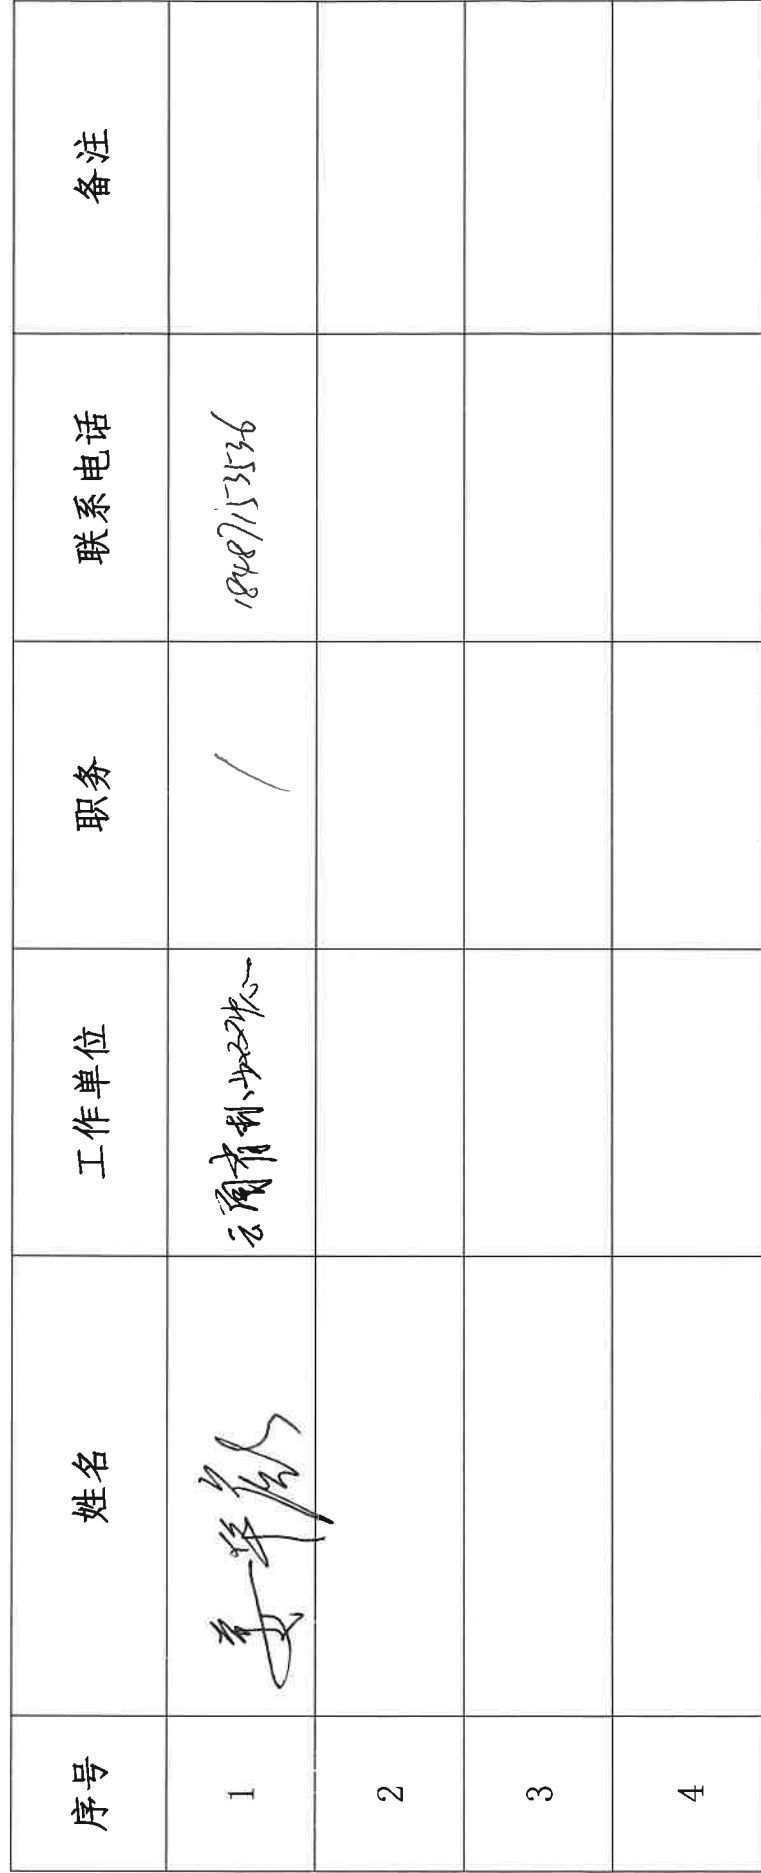 序号 姓名 工作单位 职务 联系电话 备注
1 云南省 / 18487153536
2
3
4